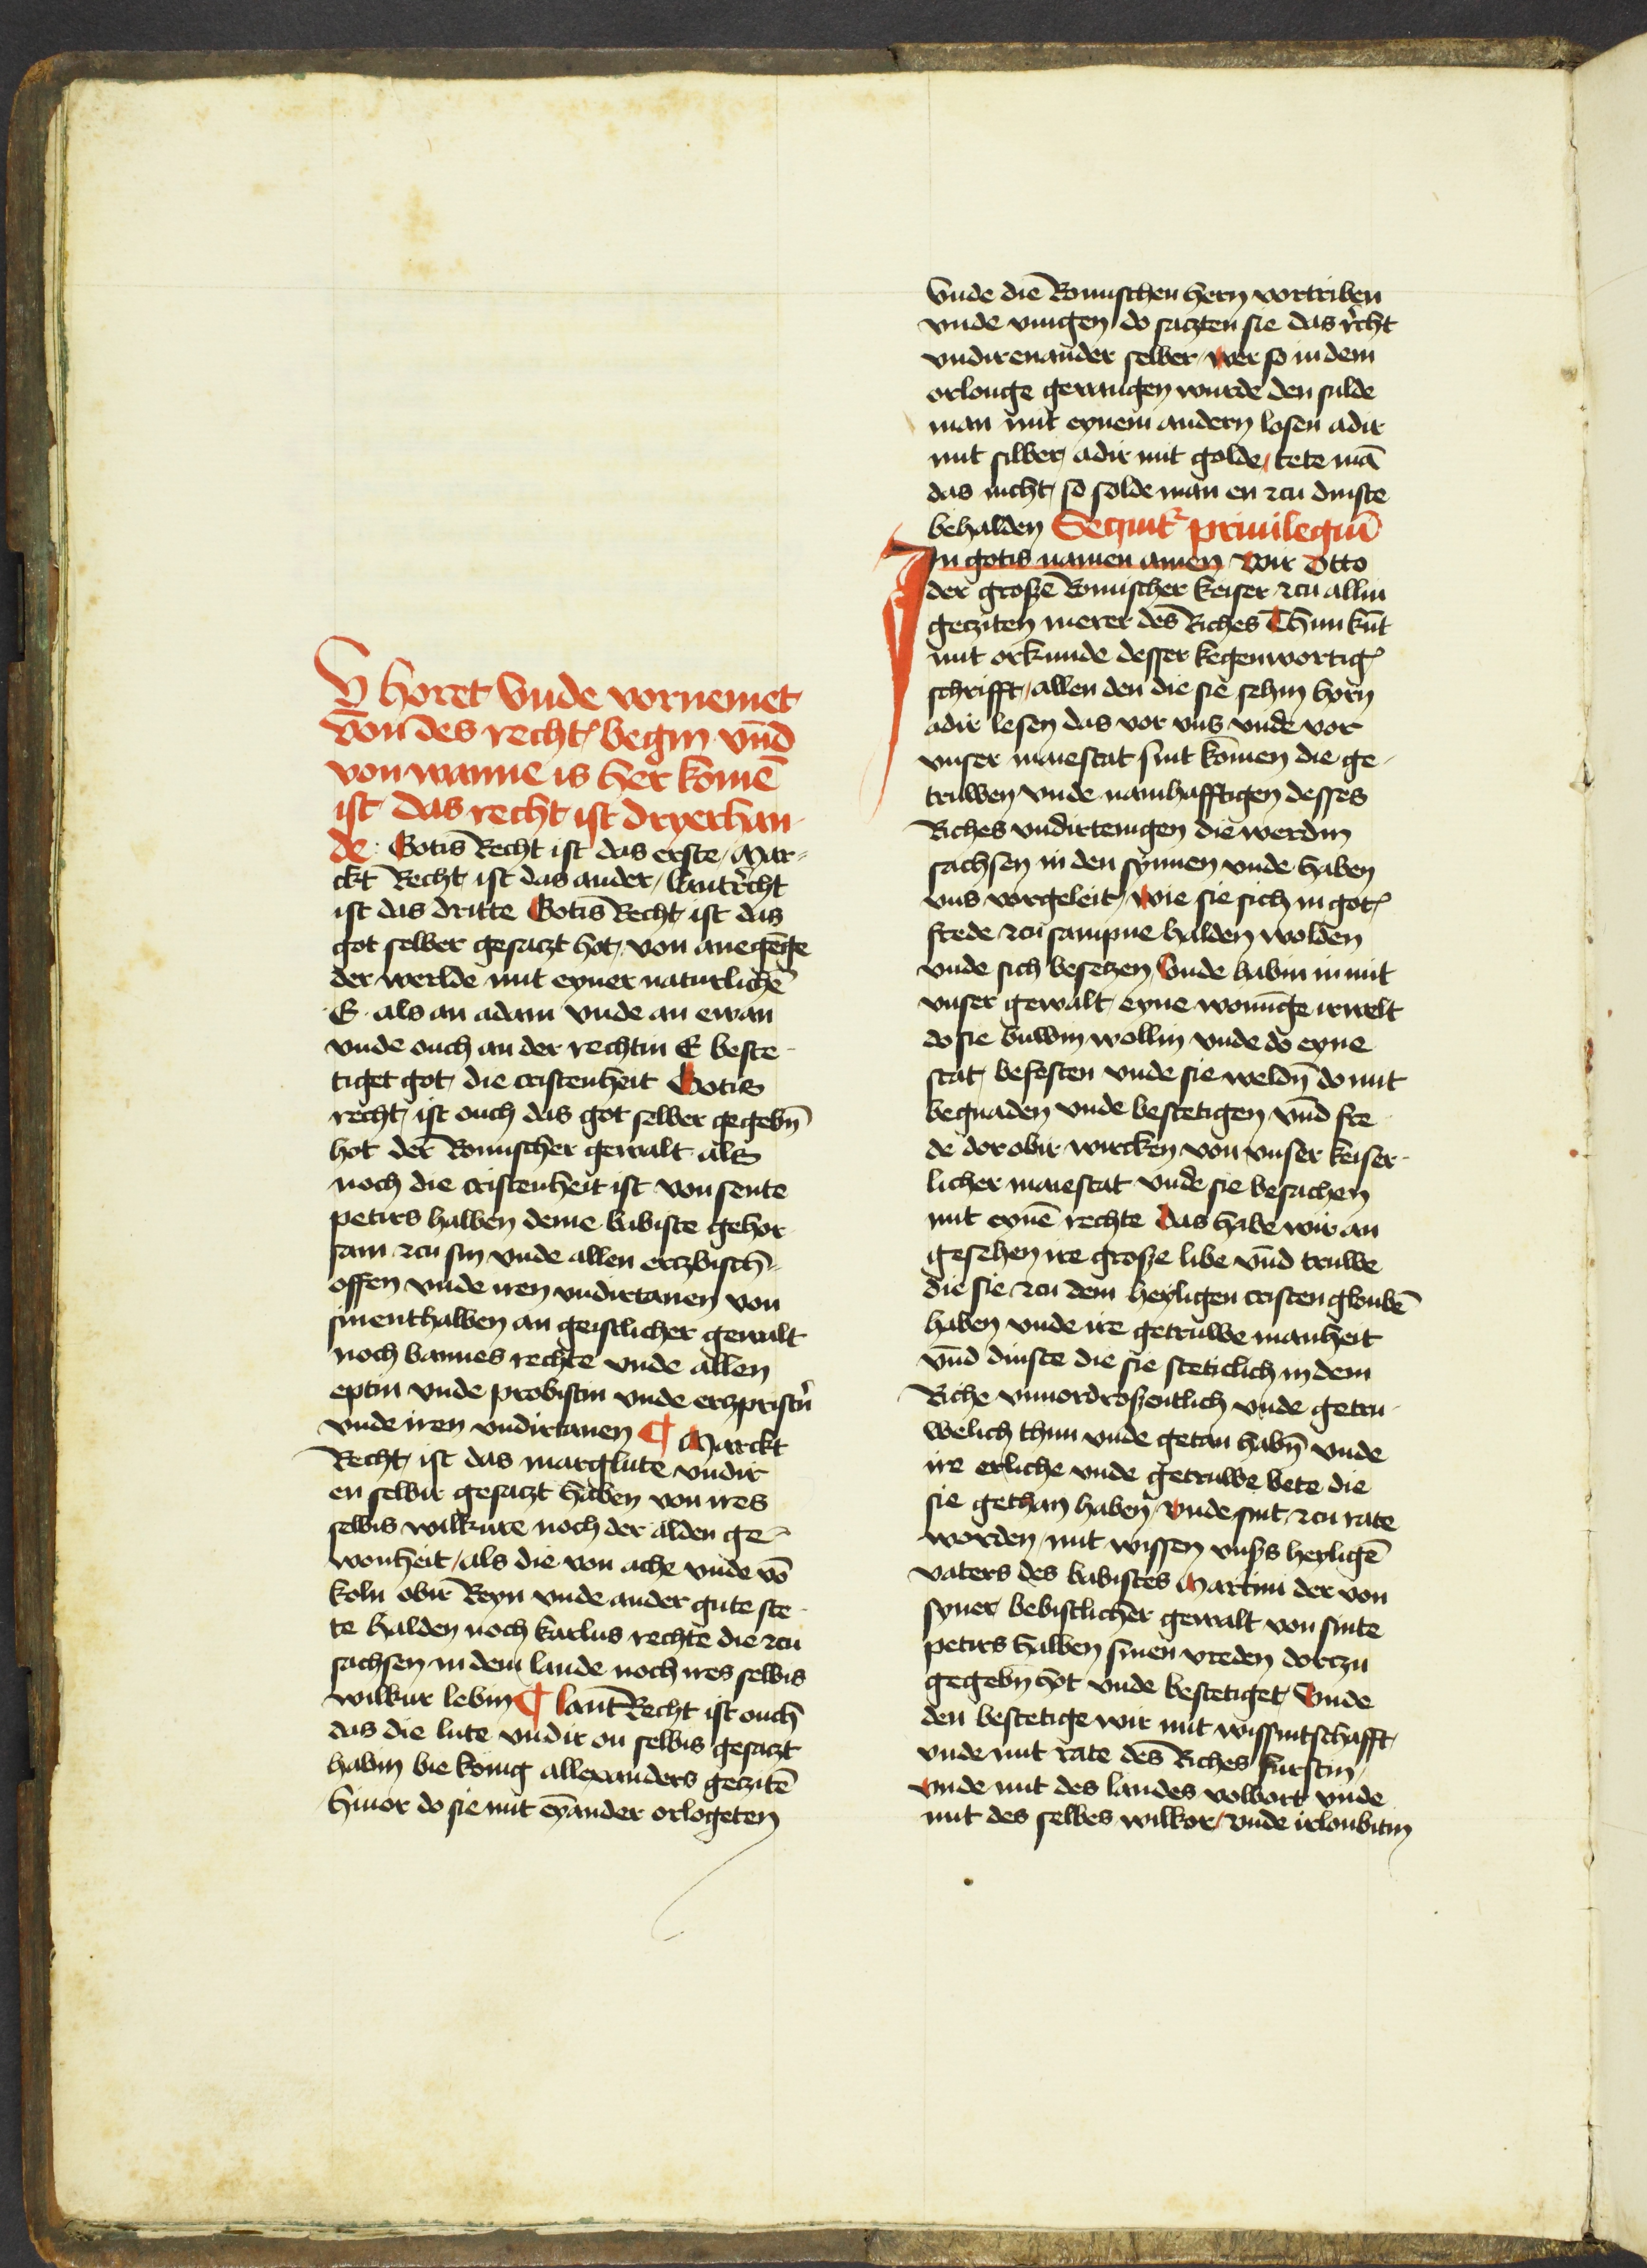 V horet Vnde vornemet
von des recht begin vnd
von wanne is her komē
ist das recht ist dryerhan
de · Gotis Recht ist das erste / Mar⸗
ckt Recht ist das ander / lantrecht
ist das dritte Gotis Recht ist das
got selber gesaczt hot / von anegēge
der werlde mit eyner naturlichē
E · als an adam vnde an ewan
vnde ouch an der rechtin E beste⸗
tiget got / die cristenheit Gotis
recht / ist ouch das got selber gegebn̄
hot der Romischer gewalt als
noch die cristenheit ist von sente
petirs halben deme babiste gehor
sam zcu sin vnde allen erczbisch⸗
offen vnde iren vndirtanen von
sinenthalben an geistlicher gewalt
noch bannes rechte vnde allen
eptin vnde probistin vnde erczpristn̄
vnde iren vndirtanen ¶ Marckt
Recht / ist das marglute vndir
en selbir gesaczt haben von ires
selbis wilkure noch der alden ge⸗
wonheit / als die von ache vnde vō
koln obir Reyn vnde ander gute ste⸗
te halden noch karlus rechte die zcu
sachsen in dem lande noch ires selbis
wilkur lebin ¶ lant Recht ist ouch
das die lute vndir on selbis gesaczt
habin bie konig allexanders geczitē
hiuor do sie mit eyānder orlogeten
Vnde die Romischen hern vortriben
vnde vingen / do saczten sie das recht
vndirenander selber / wer so in dem
orlouge gewangen wurde den sulde
man mit eynem andern losen adir
mit silber / adir mit golde / tete mā
das nicht / so solde man en zcu dinste
behalden Sequit̄ privilegiū
In gotis namen amen / Wir Otto
der große Romischer keiser / zcu allin
gecziten merer des Riches Thun kūt
mit orkunde desser kegenwortig
schrifft / allen den die sie sehin horn
adir lesen das vor vns vnde vor
vnser maiestat sint komen die ge⸗
truwen vnde namhafftigen desses
Riches vndirtenigen die werdin
sachsen in den synnen vnde haben
vns vorgeleit / wie sie sich in got
frede zcu sampne halden wolden
vnde sich besetzen / Vnde habin in mit
vnser gewalt / eyne wonūge irwelt
do sie buwin wollin vnde do eyne
stat / befesten vnde sie weldn̄ do mit
begnaden vnde bestetigen vnd fre⸗
de dorobir wircken von vnser keiser⸗
licher maiestat vnde sie besachen
mit eynē rechte Das habe wir an
gesehen ire große libe vnd truwe
die sie zcu dem heyligen cristen gloubē
haben vnde ire getruwe manheit
vnd dinste die sie steticlich in dem
Riche vnuordroßentlich vnde getru⸗
welich thun vnde getan habn̄ vnde
ire erliche vnde getruwe bete die
sie gethan haben / vnde sint / zcu rate
worden / mit wissen vnsers heyligē
vaters des babistes Martini der von
syner bebistlicher gewalt von sinte
petirs halben sinen vreden dorczu
gegebn̄ hot vnde bestetiget / Vnde
den bestetige wir mit wissintschafft /
vnde mit rate des Riches furstin /
vnde mit des landes volbort vnde
mit des selbes wilkor / vnde irloubitin